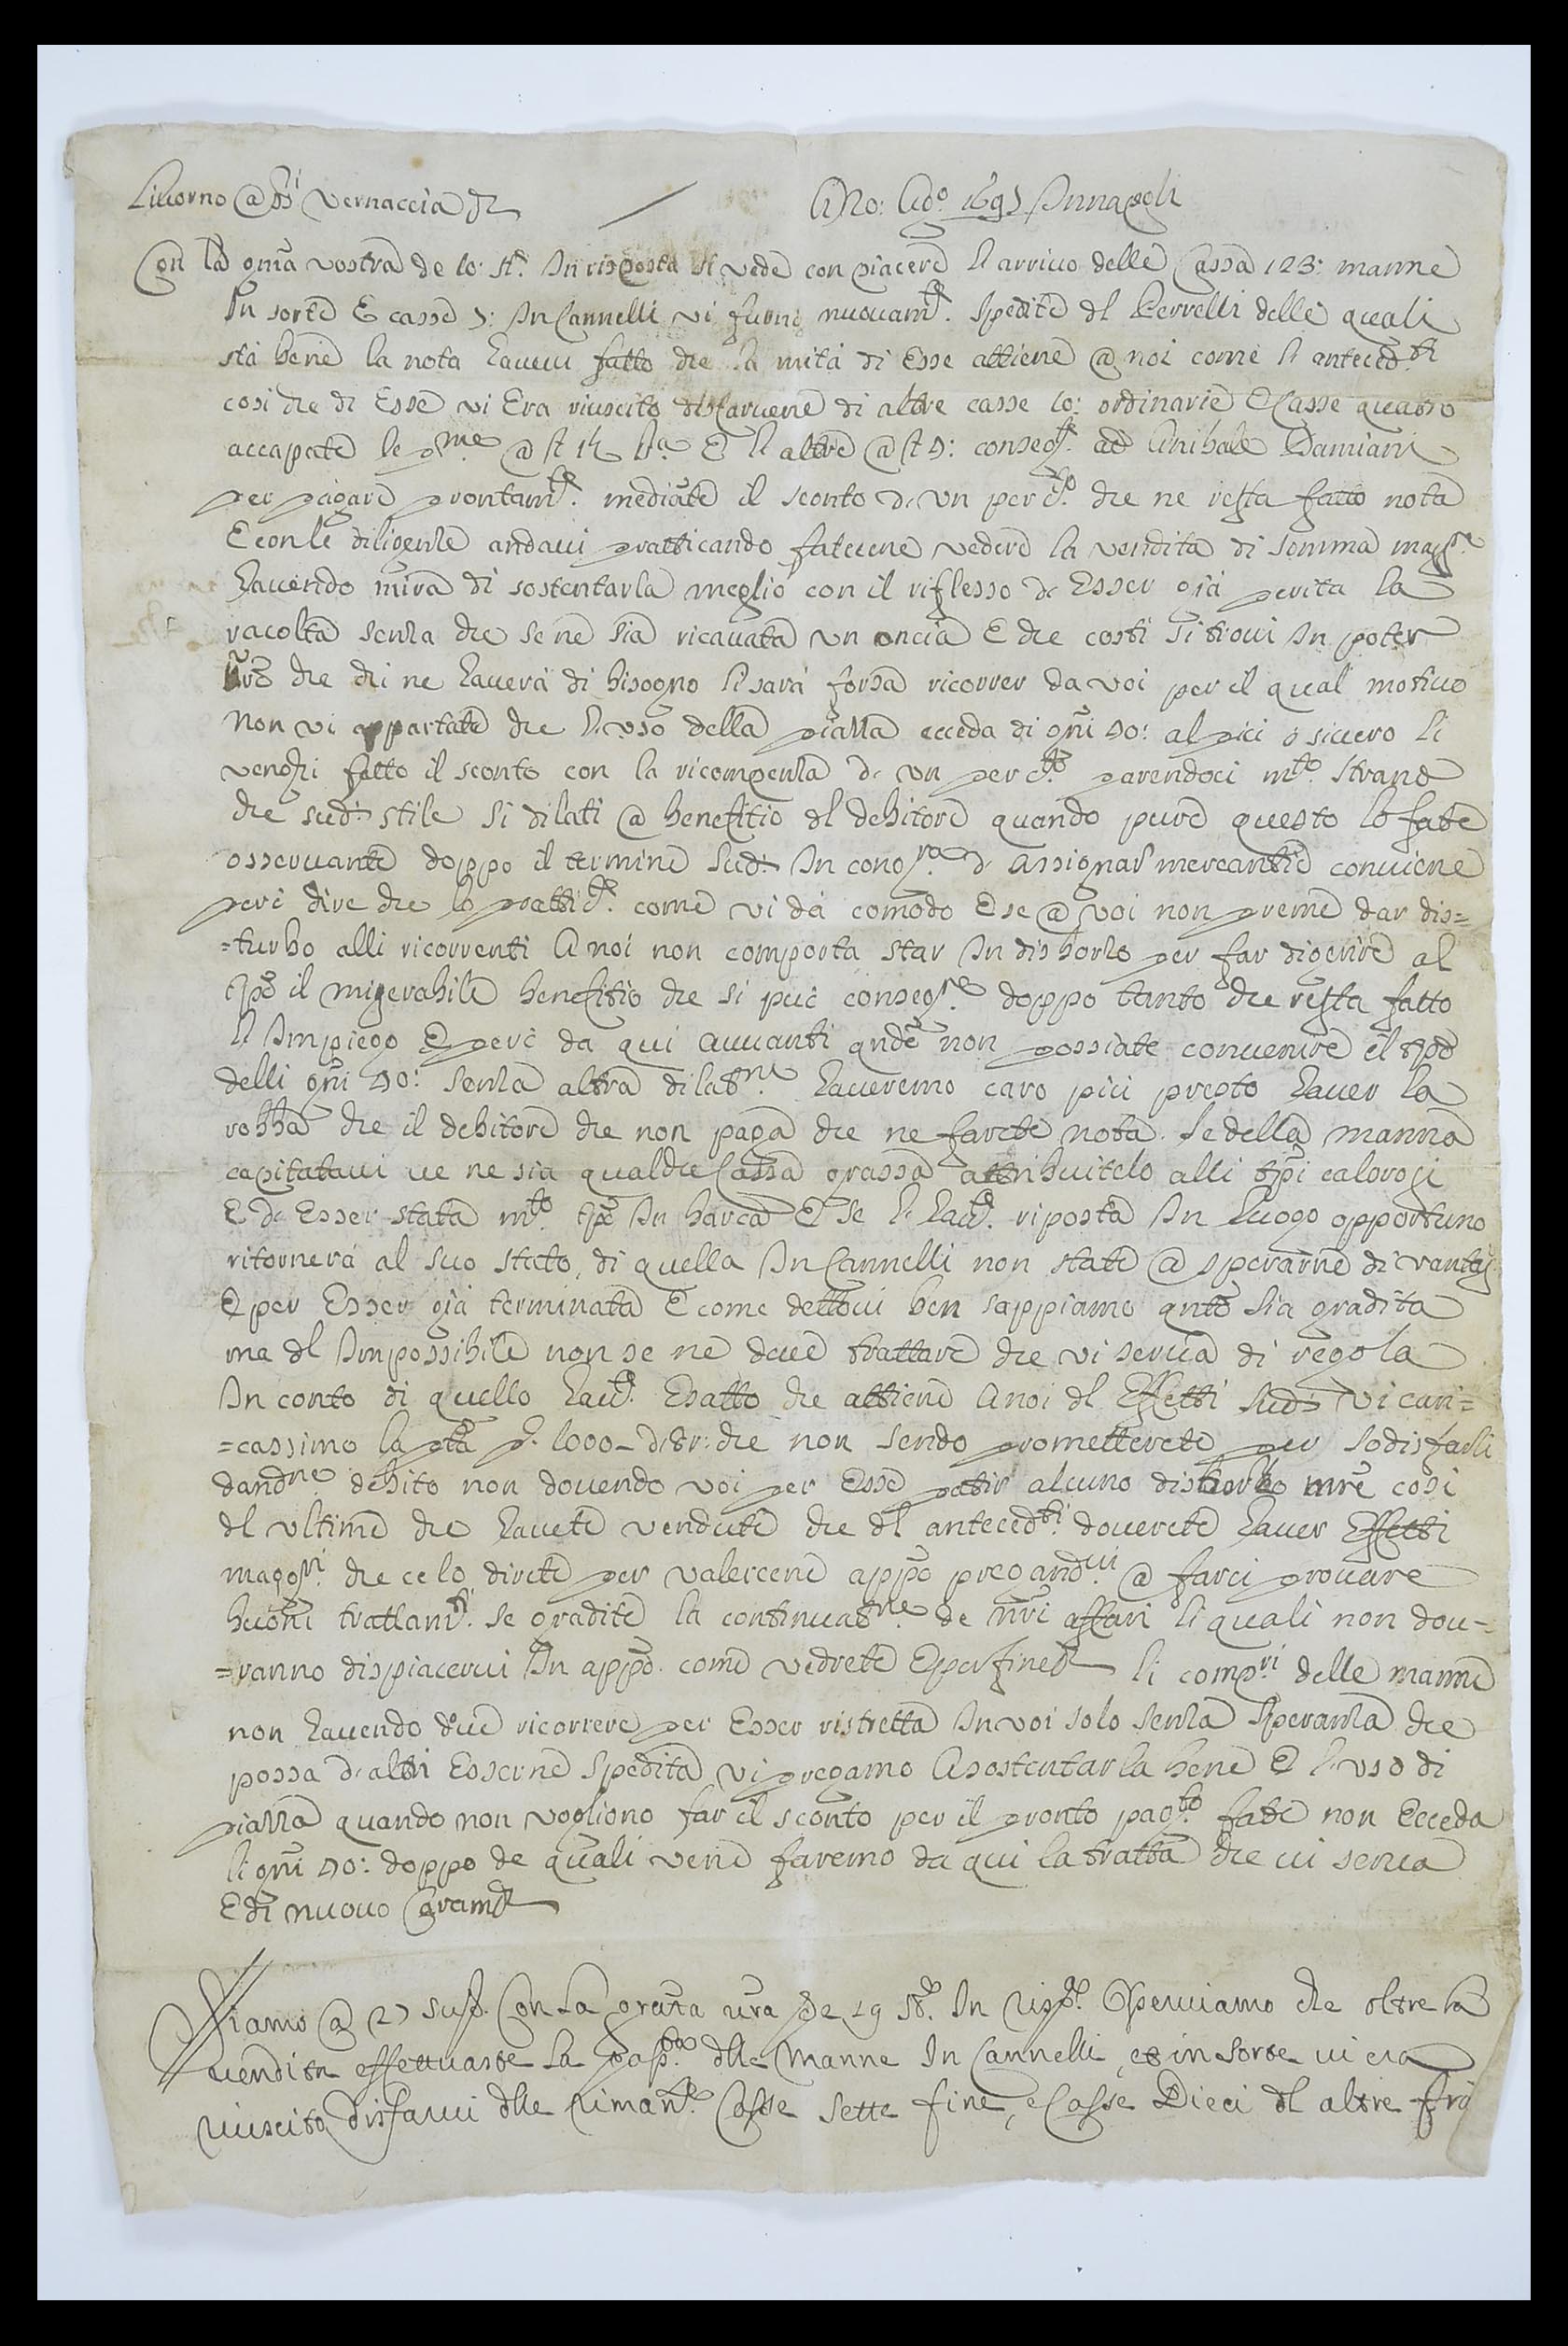 Liuorno @ ssi Vernaccia
A No: Ado 1695 In napoli
Con la gma vostra de 10: st. In risposta si vede con piacere l'arriuo delle Cassa 123: manne
In sorte E casse 5: In Cannelli vi furno nuouamte. spedite dl Perrelli delle quali
sta bene la nota hauerui fatto che la mita di Esse attiene @ noi come l'antecedti
cosi che di Esse vi Era riuscito disfaruene di altre casse 10: ordinarie E Casse quatro
accapate le pme @ st E l'altre @ st 9: conseg. ad Anibale Damiani
per pagare prontamte. mediate il sconto di un per cto che ne resta fatto nota
E con le diligenze andaui pratticando fatecene vedere la vendita di somma magre
hauendo mira di sostentarla meglio con il riflesso di Esser già perita la
racolta senza che se ne sia ricauata un oncia E che costi si troui In poter
vro che chi ne hauerà di bisogno li sarà forza ricorrer da voi per il qual motiuo
Non vi appartate che l'uso della piazza ecceda di gni 90: al più o siuero li
venghi fatto il sconto con la ricompenza di un per cto parendoci mto. strano
che sud: stile si dilati @ benefitio dl debitore quando pure questo lo fate
osseruante doppo il termine sud: In di assignar mercantie conuiene
però dire che lo comè vi dà comodo E se @ voi non preme dar dis=
=turbo alli ricorrenti A noi non comporta star In disborso per far digerire al
tpo il miserabile benefitio che si può consegre doppo tanto che resta fatto
l'Impiego E però da qui auuanti qnde non possiate conuenire il tpo
delli gni 90: senza altra dilatne haueremo caro più presto hauer la
robba che il debitore che non paga che ne farete nota. Se della manna
capitataui ve ne sia qualche Cassa grassa attribuitelo alli tpi calorosi
E di Esser stata mto. tpo In barca E se l'haute. riposta In luogo opportuno
ritornerà al suo stato, di quella In Cannelli non state @ sperarne di vantag.
E per Esser già terminata E come dettoui ben sappiamo qnto sia gradita
ma dl Impossibile non se ne deue trattare che vi serua di regola
In conto di quello haute. Esatto che attiene A noi dl Effetti sud: vi cari=
=cassimo la pta p. 1000 - che non sendo prometterete per sodisfarli
dandne debito non douendo voi per Esse patir alcuno disborso mre così
dl vltime che hauete vendute che dl antecedti: douerete hauer Effetti
maggri che ce lo direte per valercene appo pregandui @ farci prouare
buoni trattamti. se gradite la continuatne de nri affari li quali non dou=
=ranno dispiacerui In appo. come vedrete E per fine li compri delle manne
non hauendo doue ricorrere per Esser ristretta In voi solo senza speranza che
possa di altri Esserne spedita vi pregamo A sostentarla bene E l'uso di
piazza quando non vogliono far il sconto per il pronto pagto. fate non Ecceda
li gni 90: doppo de quali vene faremo da qui la tratta che vi serua
E di nuouo

Siamo @ 27 sud. Con la grata vra de 19 st. In rispta. Osseruiamo che oltre la
vendita effettuaste la dlle Manne In Cannelli, et in sorte vi era
riuscito disfarui dlle rimante. Casse sette fine, e Casse Dieci dl altre